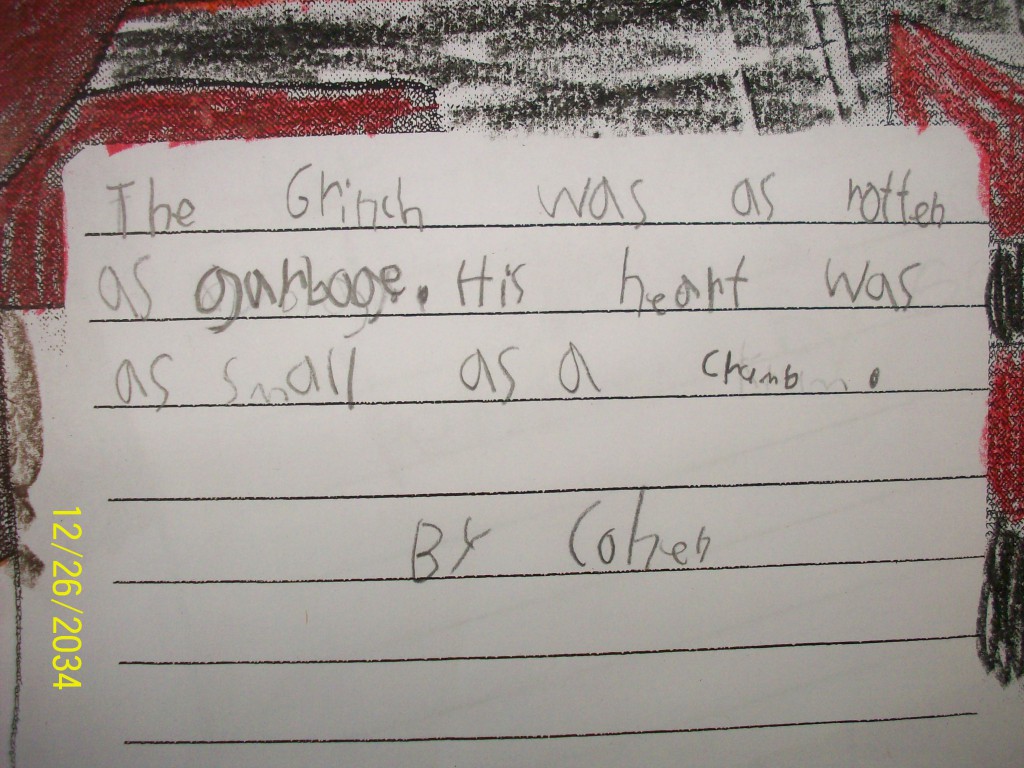 The Grinch was as rotten
as garbage. His heart was
as small as a crumb.
By Cohen
12/26/2034